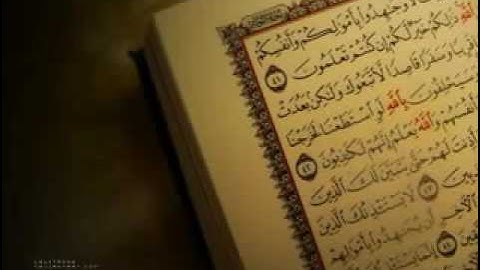 وَجَٰهِدُوا۟ بِأَمْوَٰلِكُمْ وَأَنفُسِكُمْ
ٱللَّهِ ذَٰلِكُمْ خَيْرٌ لَّكُمْ إِن كُنتُمْ تَعْلَمُونَ ٤١
قَرِيبًا وَسَفَرًا قَاصِدًا لَّٱتَّبَعُوكَ وَلَٰكِنۢ بَعُدَتْ
وَسَيَحْلِفُونَ بِٱللَّهِ لَوِ ٱسْتَطَعْنَا لَخَرَجْنَا
أَنفُسَهُمْ وَٱللَّهُ يَعْلَمُ إِنَّهُمْ لَكَٰذِبُونَ ٤٢
أَذِنتَ لَهُمْ حَتَّىٰ يَتَبَيَّنَ لَكَ ٱلَّذِينَ
٤٣ لَا يَسْتَـْٔذِنُكَ ٱلَّذِينَ
ٱلْءَاخِرِ أَن يُجَٰهِدُوا۟ بِأَمْوَٰلِهِمْ
٤٤